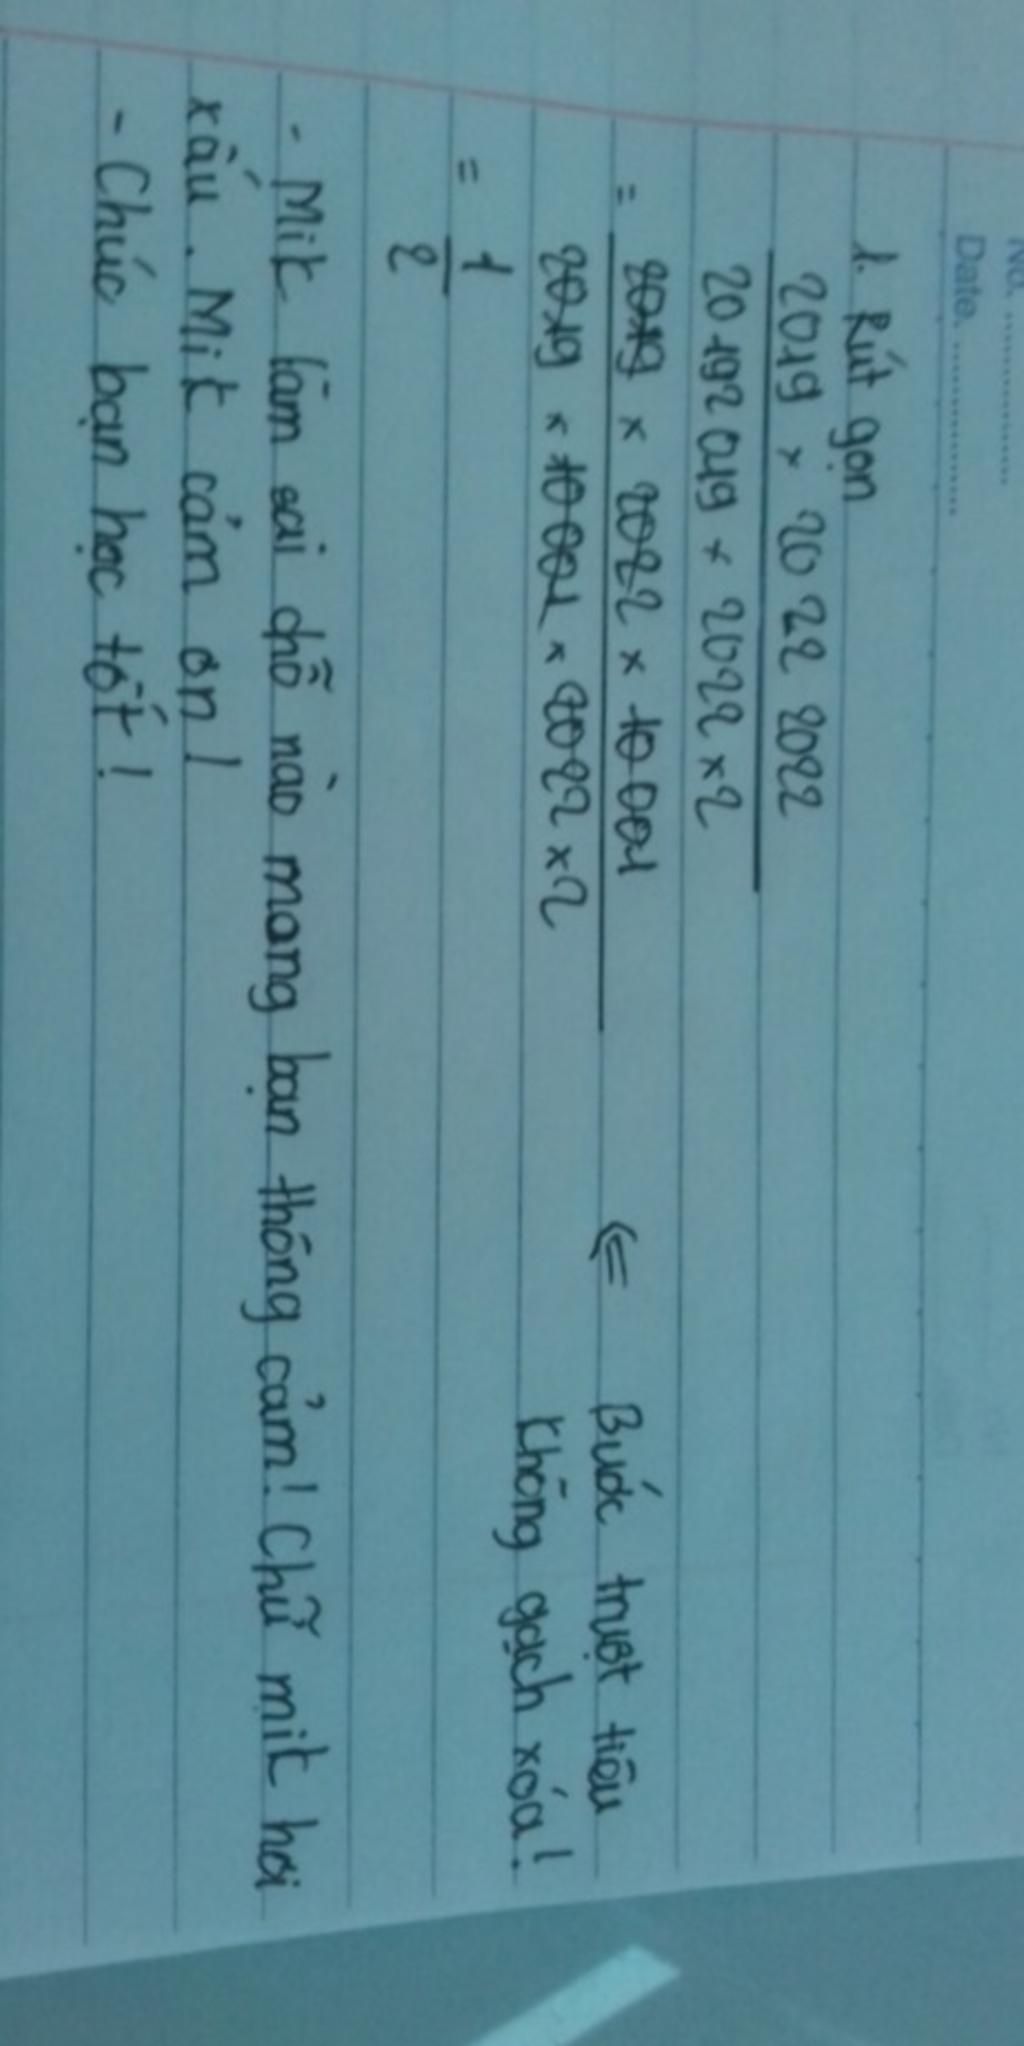 No. ............
Date. ............
1. Rút gọn
2019 × 2022 2022
2019 2019 × 2022 × 2
= 2019 × 2022 × 10001
2019 × 10001 × 2022 × 2
<= Bước trượt tiêu
không gạch xóa!
= 1
2
- Mik làm sai chỗ nào mong bạn thông cảm! Chữ mik hơi
xấu. Mik cảm ơn!
- Chúc bạn học tốt!